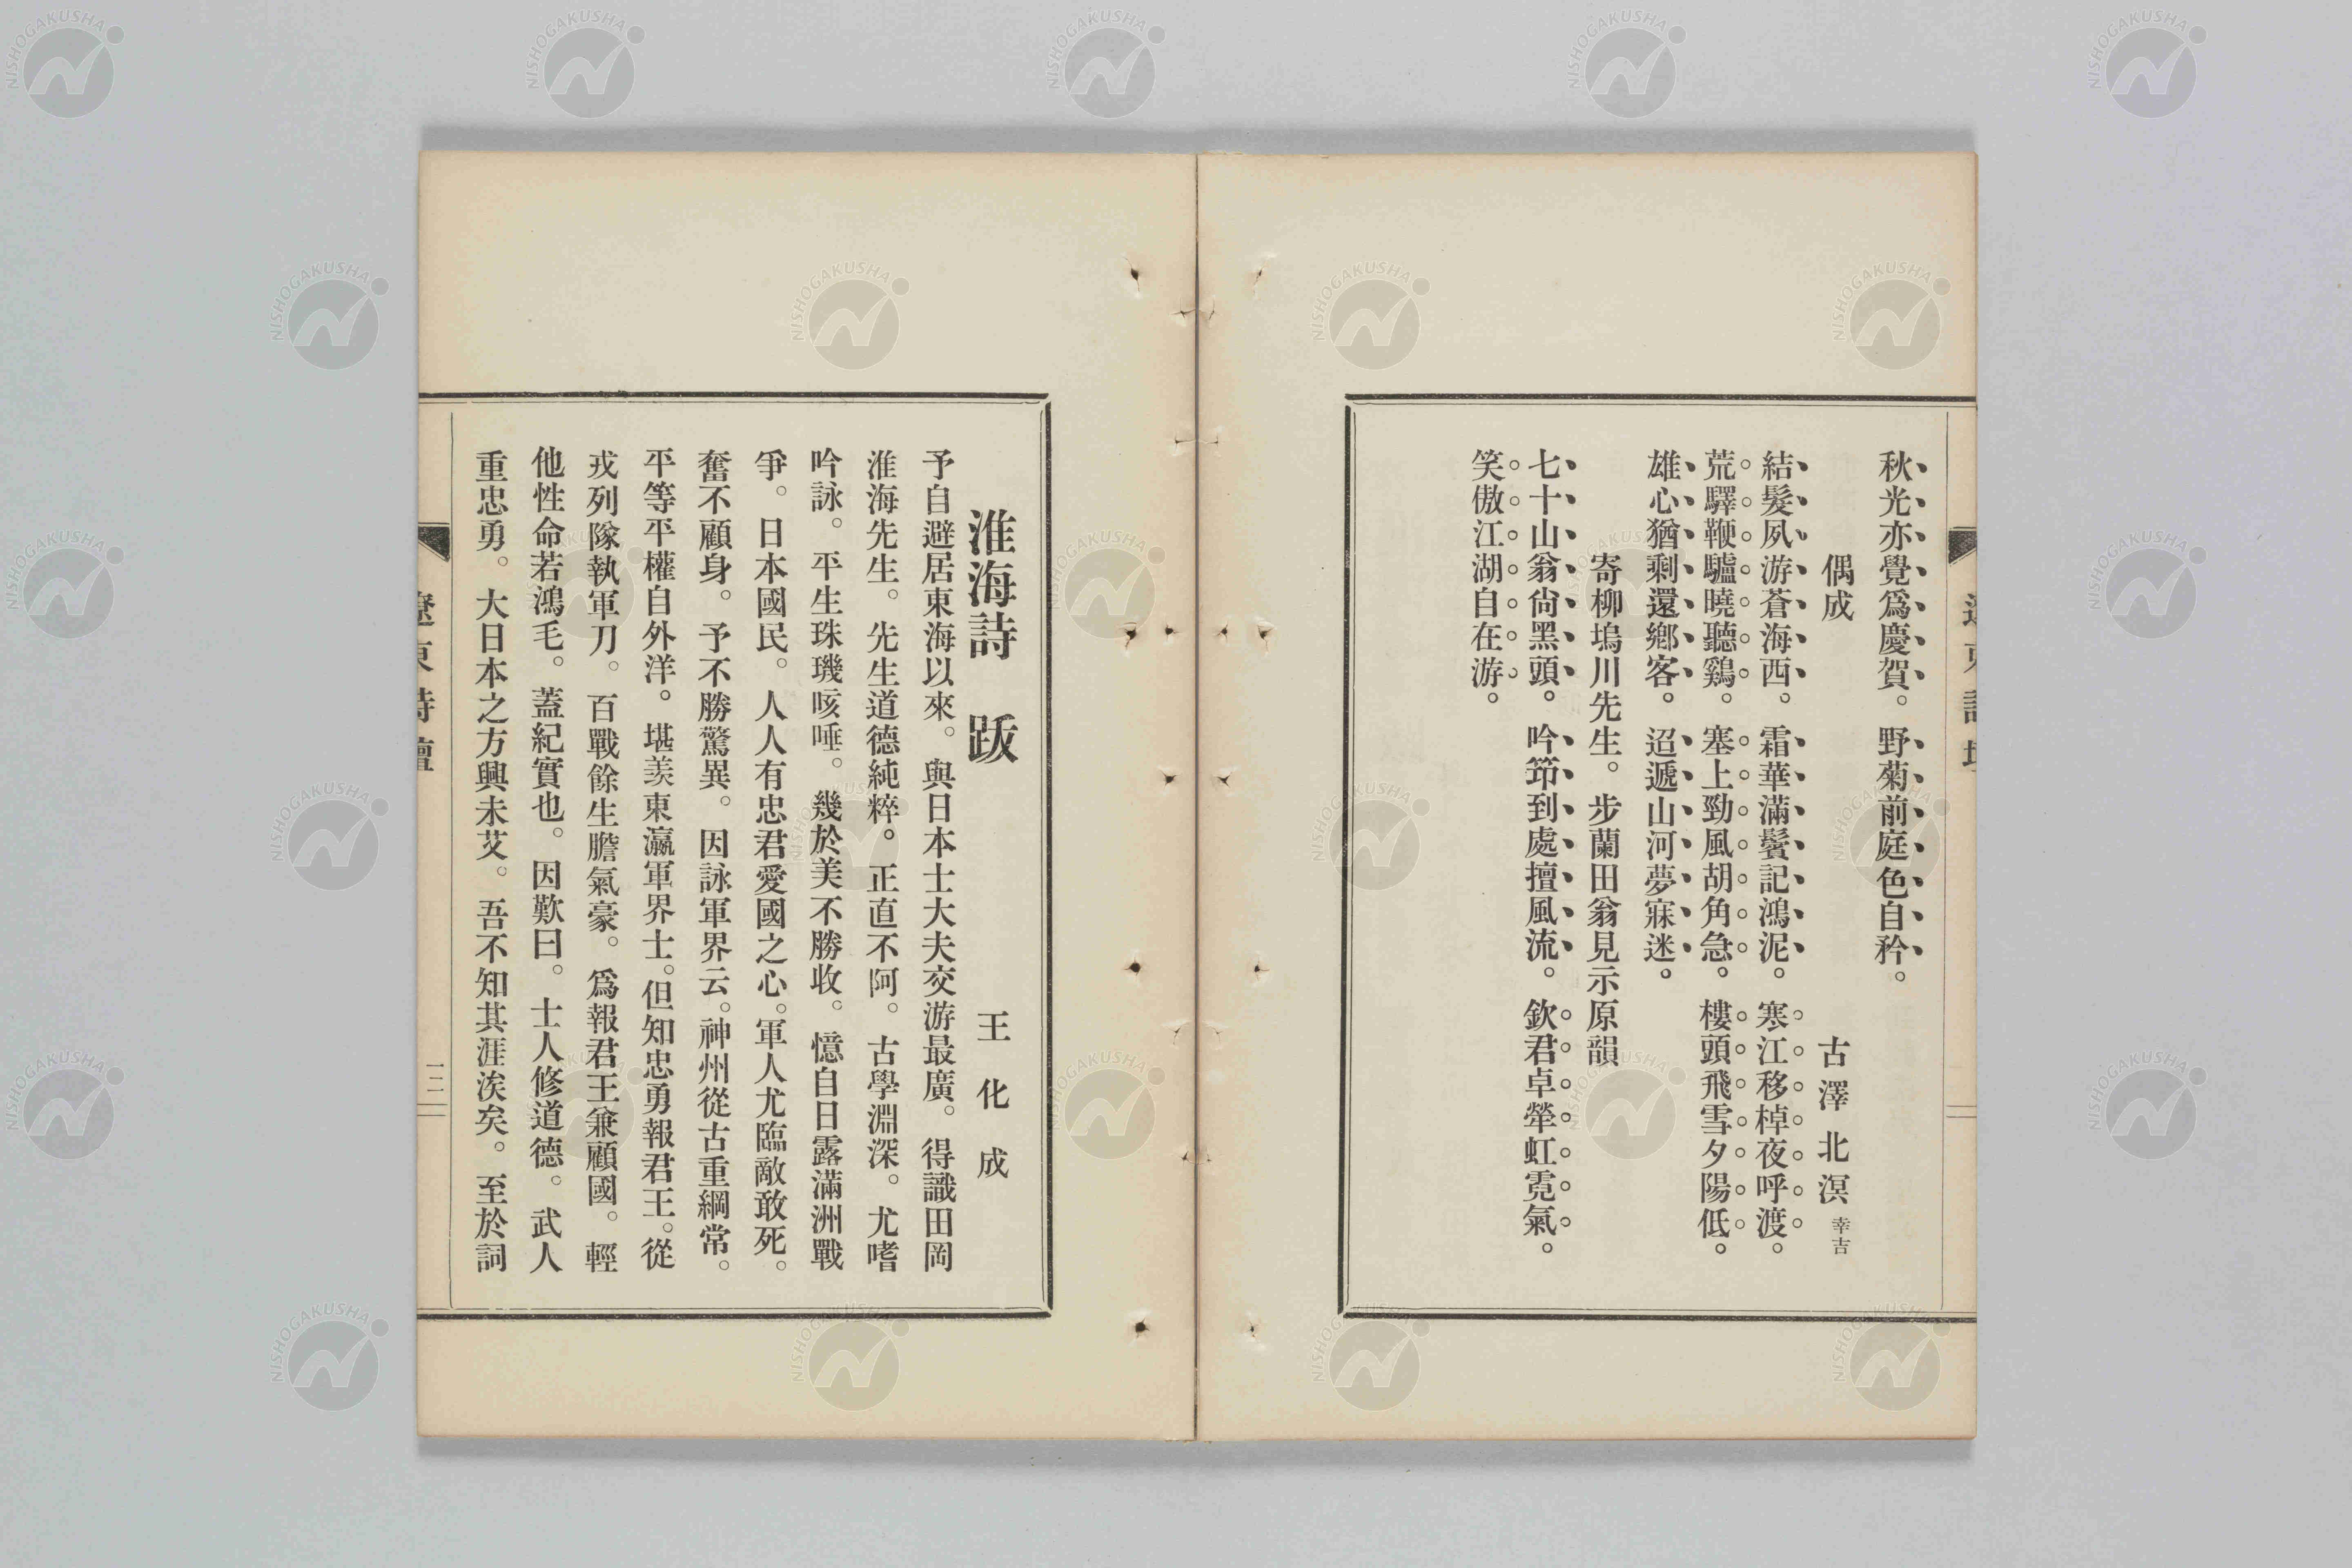 秋光亦覺爲慶賀。野菊前庭色自矜。
偶成　古澤北溟 幸吉
結髮夙游蒼海西。霜華滿鬢記鴻泥。寒江移棹夜呼渡。
荒驛鞭驢曉聽鷄。塞上勁風胡角急。樓頭飛雪夕陽低。
雄心猶剩還鄉客。迢遞山河夢寐迷。
寄柳塢川先生。步蘭田翁見示原韻
七十山翁尙黑頭。吟筇到處擅風流。欽君卓犖虹霓氣。
笑傲江湖自在游。
遼東詩壇
淮海詩跋　王化成
予自避居東海以來。與日本士大夫交游最廣。得識田岡
淮海先生。先生道德純粹。正直不阿。古學淵深。尤嗜
吟詠。平生珠璣咳唾。幾於美不勝收。憶自日露滿洲戰
爭。日本國民。人人有忠君愛國之心。軍人尤臨敵敢死。
奮不顧身。予不勝驚異。因詠軍界云。神州從古重綱常。
平等平權自外洋。堪羨東瀛軍界士。但知忠勇報君王。從
戎列隊執軍刀。百戰餘生膽氣豪。爲報君王兼顧國。輕
他性命若鴻毛。蓋紀實也。因歎曰。士人修道德。武人
重忠勇。大日本之方興未艾。吾不知其涯涘矣。至於詞
遼東詩壇
NISHOGAKUSHA